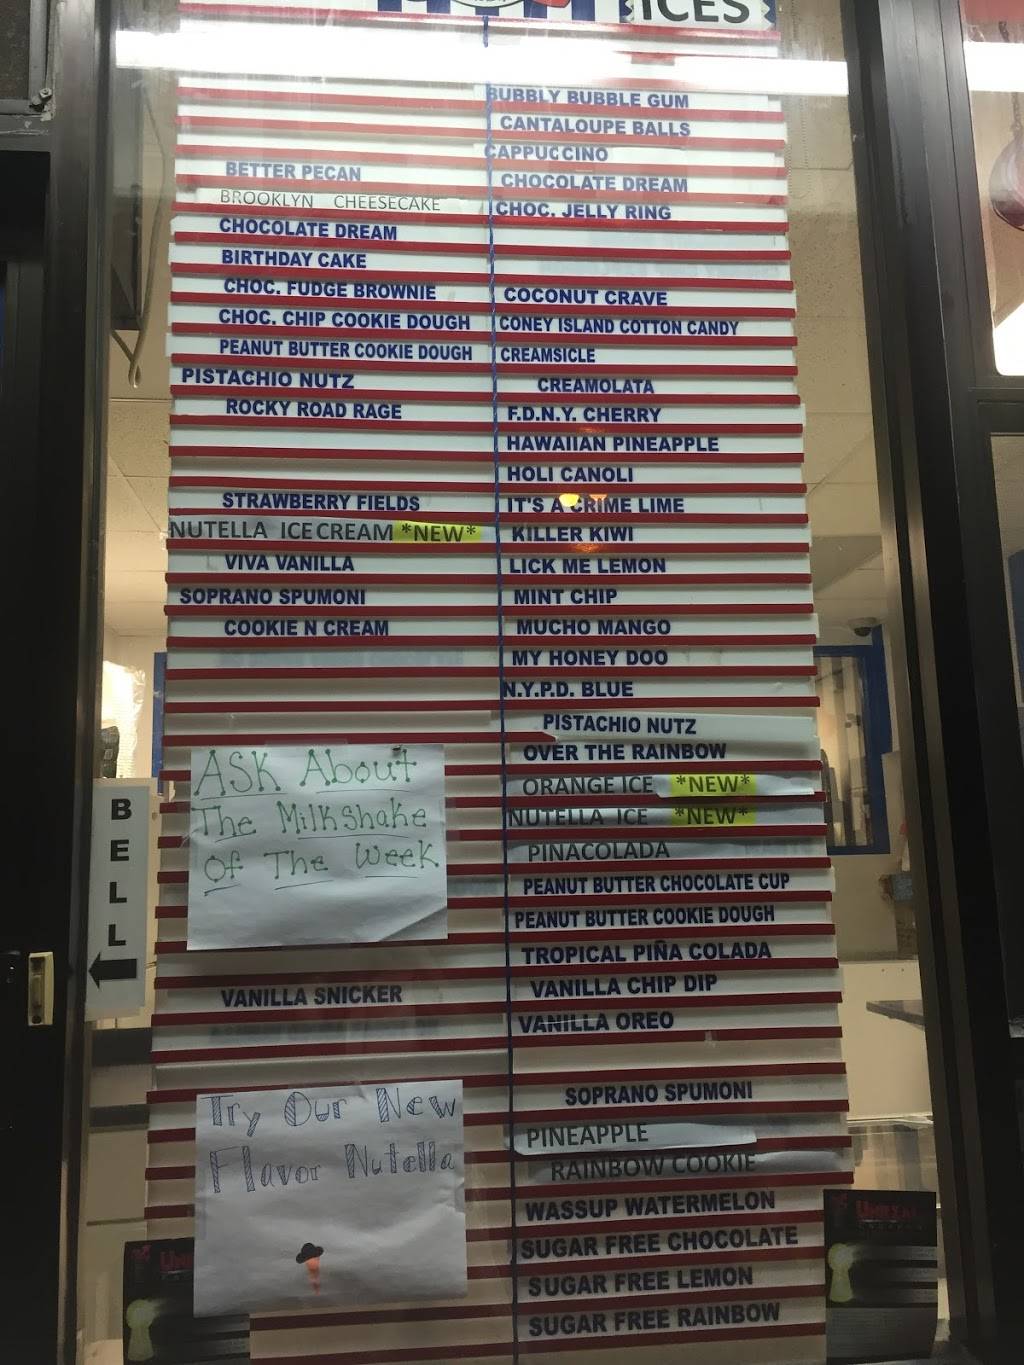 ICES
BETTER PECAN
BROOKLYN CHEESECAKE
CHOCOLATE DREAM
BIRTHDAY CAKE
CHOC. FUDGE BROWNIE
CHOC. CHIP COOKIE DOUGH
PEANUT BUTTER COOKIE DOUGH
PISTACHIO NUTZ
ROCKY ROAD RAGE
STRAWBERRY FIELDS
NUTELLA ICE CREAM *NEW*
VIVA VANILLA
SOPRANO SPUMONI
COOKIE N CREAM
ASK About
The Milkshake
Of The Week
VANILLA SNICKER
Try Our New
Flavor Nutella
BUBBLY BUBBLE GUM
CANTALOUPE BALLS
CAPPUCCINO
CHOCOLATE DREAM
CHOC. JELLY RING
COCONUT CRAVE
CONEY ISLAND COTTON CANDY
CREAMSICLE
CREAMOLATA
F.D.N.Y. CHERRY
HAWAIIAN PINEAPPLE
HOLI CANOLI
IT'S A CRIME LIME
KILLER KIWI
LICK ME LEMON
MINT CHIP
MUCHO MANGO
MY HONEY DOO
N.Y.P.D. BLUE
PISTACHIO NUTZ
OVER THE RAINBOW
ORANGE ICE *NEW*
NUTELLA ICE *NEW*
PINACOLADA
PEANUT BUTTER CHOCOLATE CUP
PEANUT BUTTER COOKIE DOUGH
TROPICAL PIÑA COLADA
VANILLA CHIP DIP
VANILLA OREO
SOPRANO SPUMONI
PINEAPPLE
RAINBOW COOKIE
WASSUP WATERMELON
SUGAR FREE CHOCOLATE
SUGAR FREE LEMON
SUGAR FREE RAINBOW
BELL